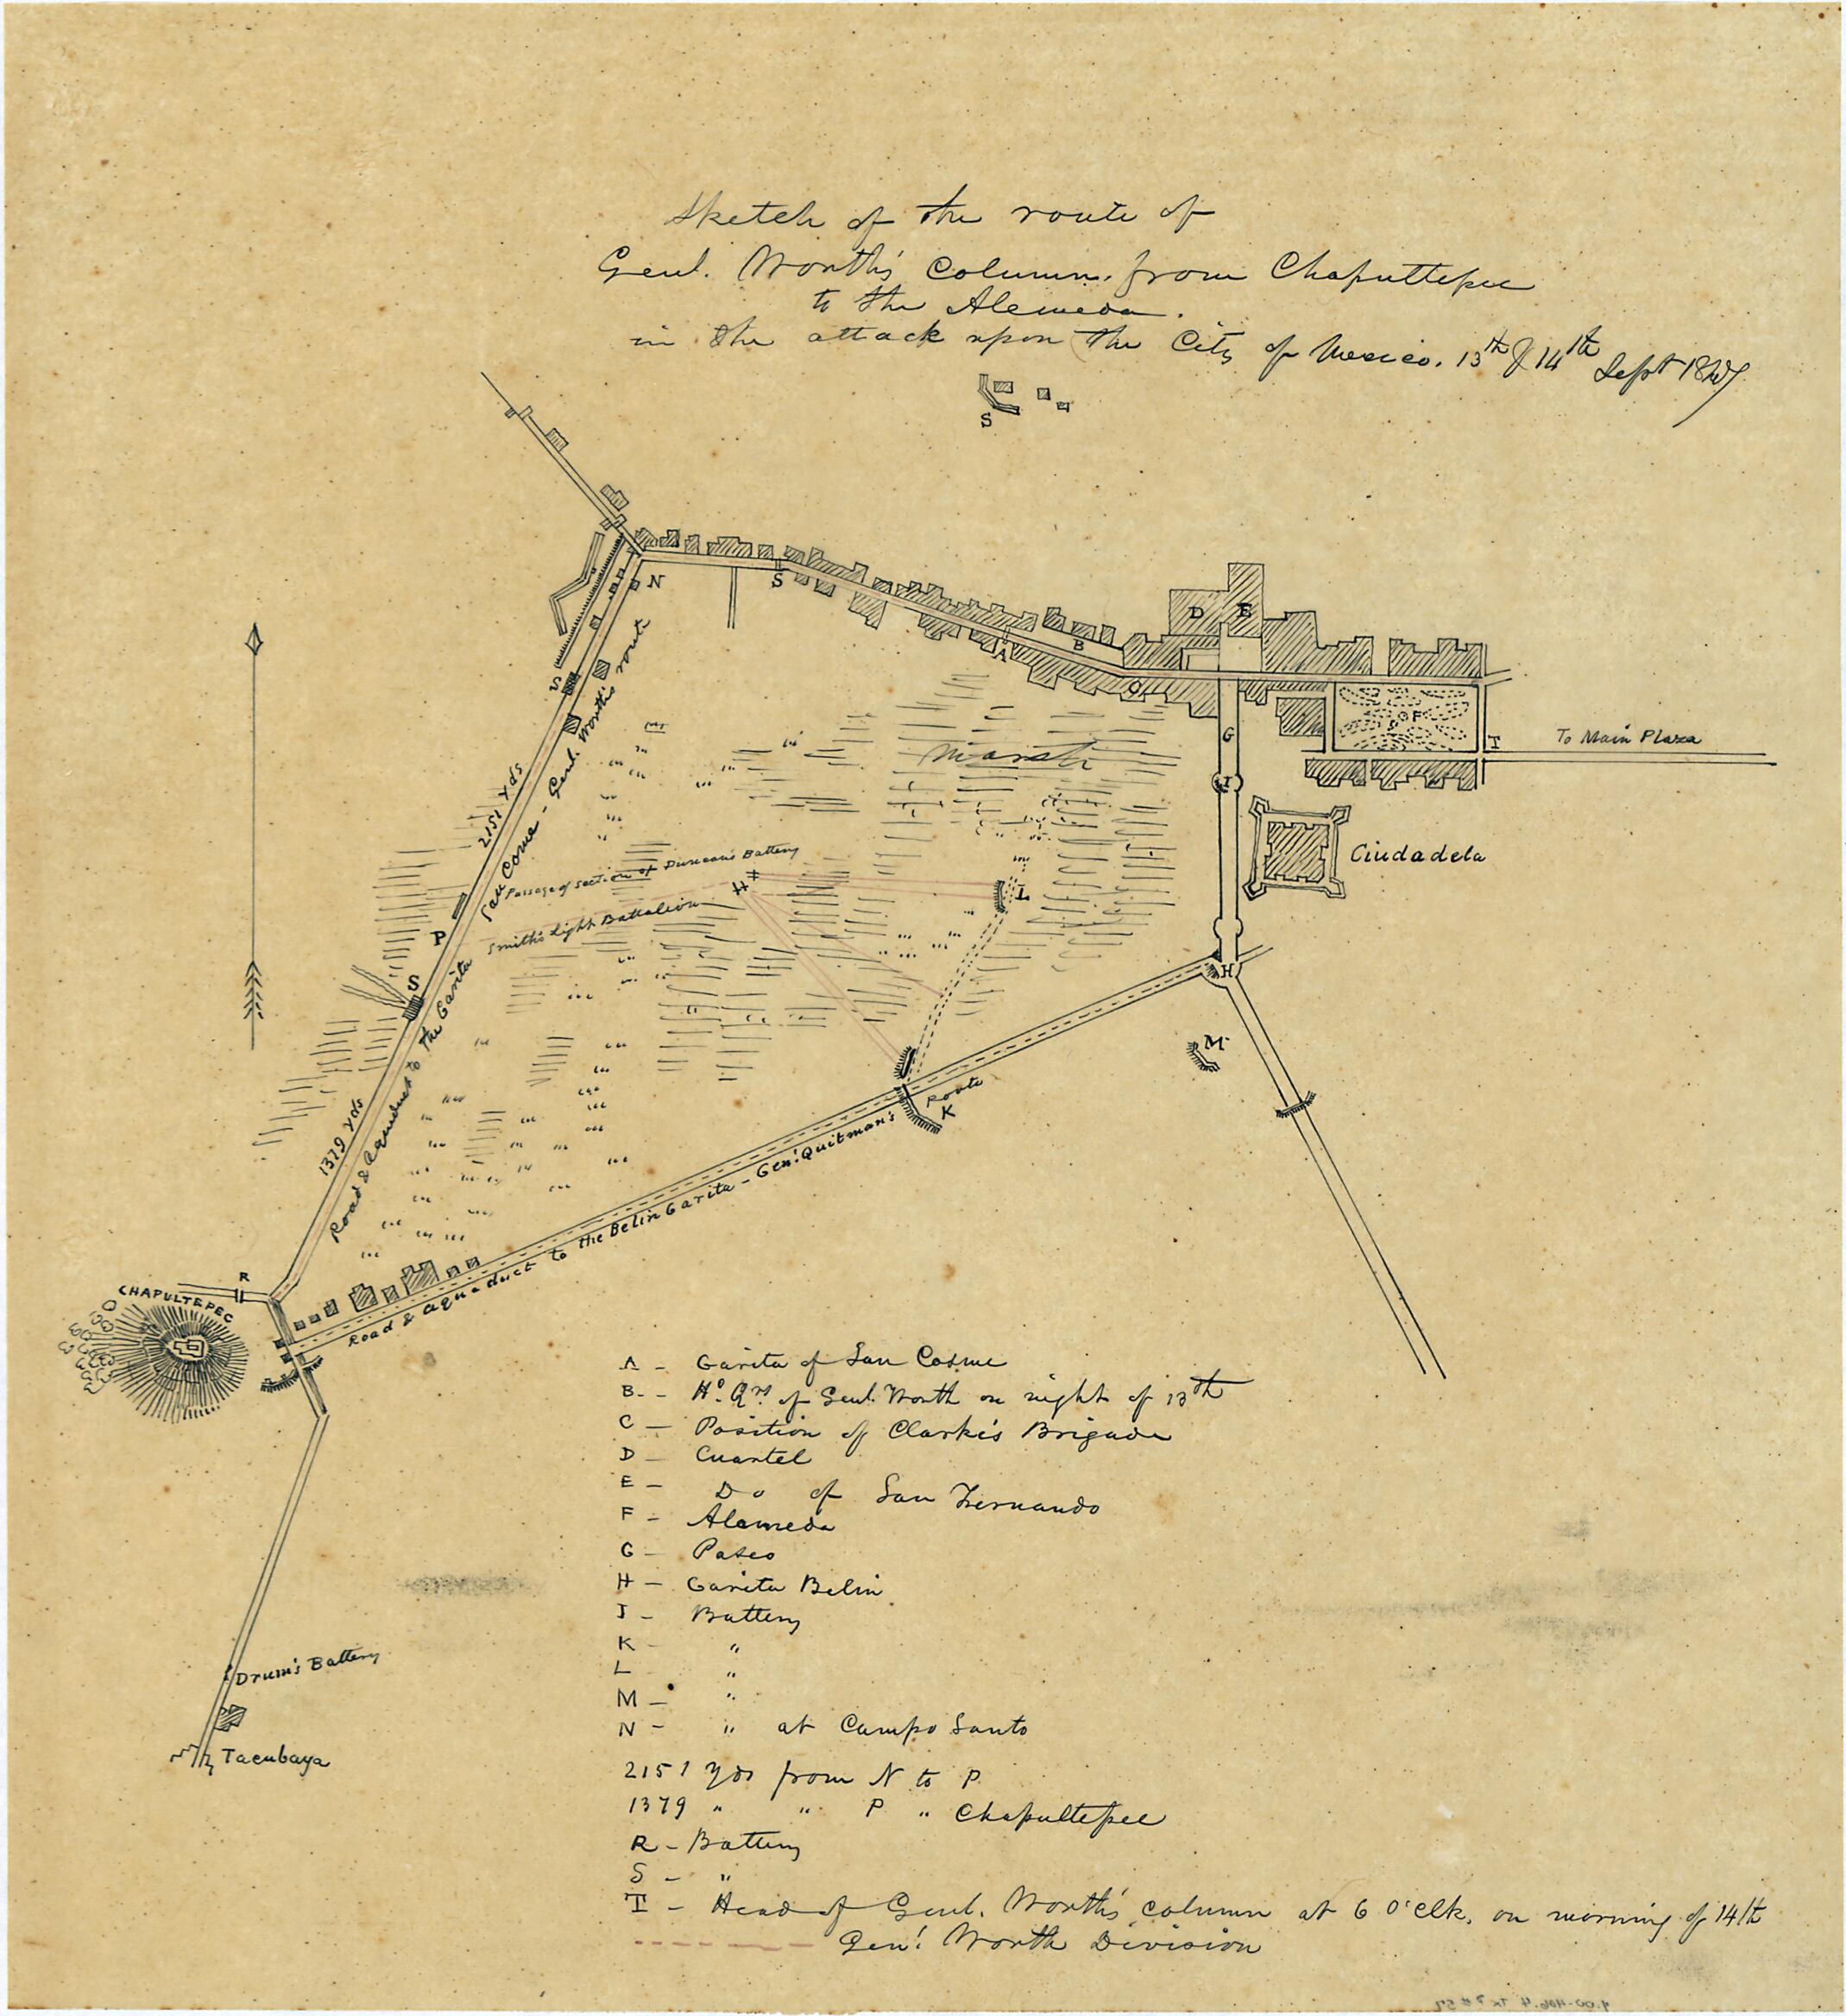 Sketch of the route of
Genl. Worth's Column. from Chapultepec
to the Alemeda.
in the attack upon the City of Mexico. 13th & 14th Sept 1847
S
N
S
D
E
A
B
C
S
G
F
T
To Main Plaza
I
Marsh
Ciudadela
2151 Yds
San Come - Genl. Worth's route
Passage of section of Duncan's Battery
H
L
P
Smith's light Battalion
S
H
M
1379 Yds
Road & Aqueduct to the Garita
K
Road & Aquaduct to the Belin Garita - Genl. Quitman's Route
R
CHAPULTEPEC
A - Garita of San Cosme
B - Hd. Qrs. of Genl. Worth on night of 13th
C - Position of Clarke's Brigade
D - Cuartel
E - Do of San Fernando
F - Alameda
G - Paseo
H - Garita Belin
I - Battery
K - "
L "
M - "
N - " at Campo Santo
2151 Yds from N to P
1379 " " P " Chapultepec
R - Battery
S - "
T - Head of Genl. Worth's column at 6 O'Clk. on morning of 14th
Genl. Worth Division
Drum's Battery
Tacubaya